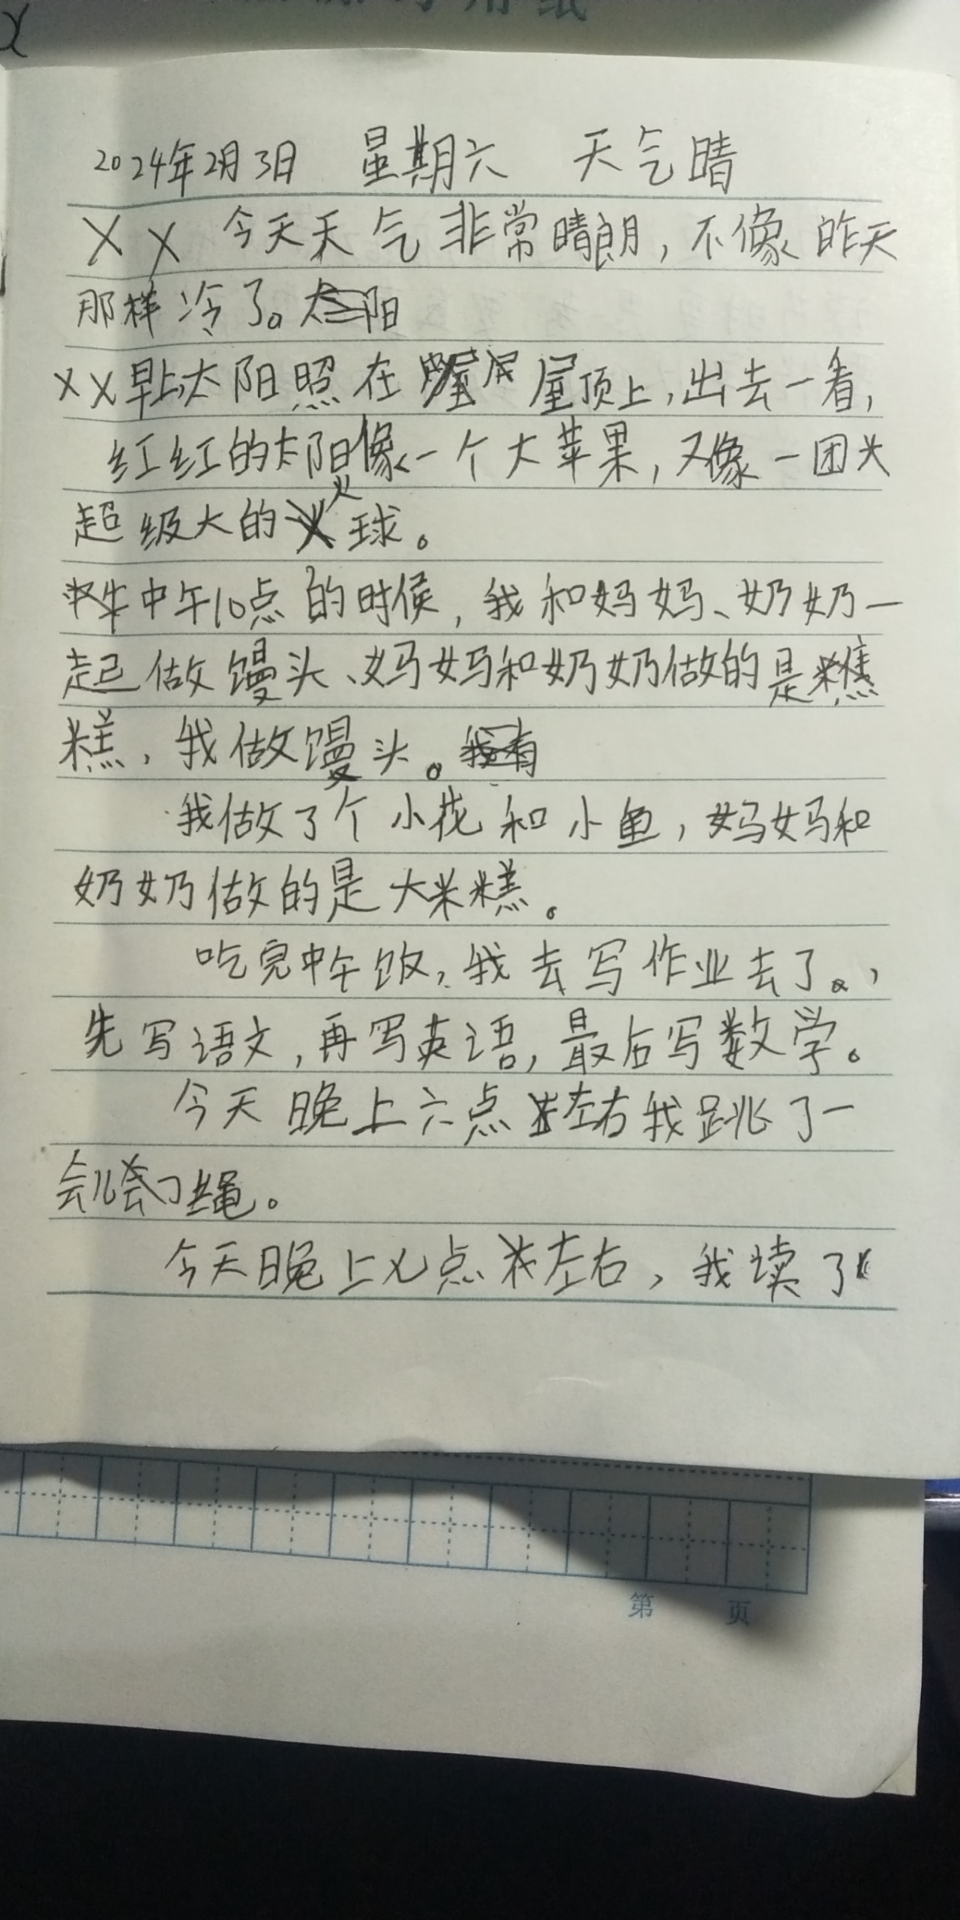 2024年2月3日 星期六 天气晴
X X 今天天气非常晴朗，不像昨天
那样冷了。
X X 早上，太阳照在屋顶上，出去一看，
红红的太阳像一个大苹果，又像一团火
超级大的火球。
中午10点的时候，我和妈妈、奶奶一
起做馒头、妈妈和奶奶做的是
糕，我做馒头。
我做了个小花和小鱼，妈妈和
奶奶做的是大米糕。
吃完中午饭，我去写作业去了。，
先写语文，再写英语，最后写数学。
今天晚上六点左右我跳了一
会儿绳。
今天晚上 点左右，我读了
第 页